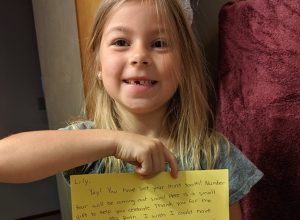 Lily,
Yay! You have lost your third tooth! Number
four will be coming out soon! Here is a small
gift to help you celebrate. Thank you for the
I wish I could have